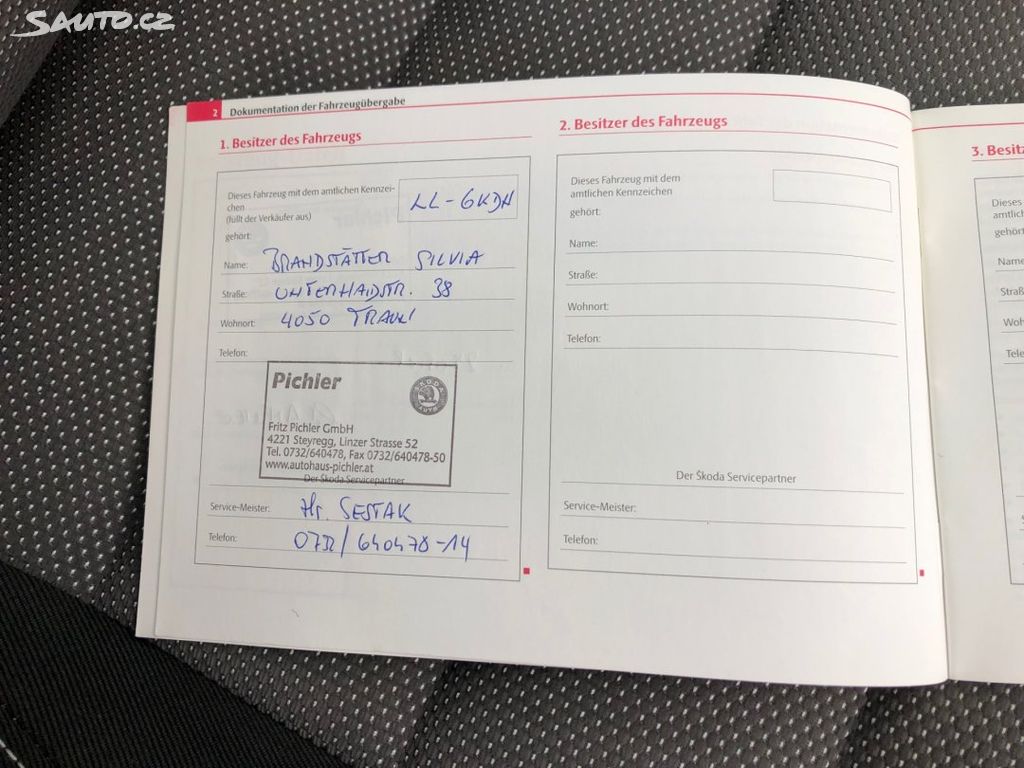 SAUTO.CZ
2 Dokumentation der Fahrzeugübergabe
1. Besitzer des Fahrzeugs
Dieses Fahrzeug mit dem amtlichen Kennzei-
chen
(füllt der Verkäufer aus)
LL-6KDH
gehört:
Name: BRANDSTÄTTER SILVIA
Straße: UNTERHAIDSTR. 38
Wohnort: 4050 TRAUN
Telefon:
Pichler
ŠKODA
AUTO
Fritz Pichler GmbH
4221 Steyregg, Linzer Strasse 52
Tel. 0732/640478, Fax 0732/640478-50
www.autohaus-pichler.at
Der Škoda Servicepartner
Service-Meister: Hr. SESTAK
Telefon: 0732/640478-14
2. Besitzer des Fahrzeugs
Dieses Fahrzeug mit dem
amtlichen Kennzeichen
gehört:
Name:
Straße:
Wohnort:
Telefon:
Der Škoda Servicepartner
Service-Meister:
Telefon:
3. Besitz
Dieses
amtlich
gehört
Name
Straß
Woh
Tele